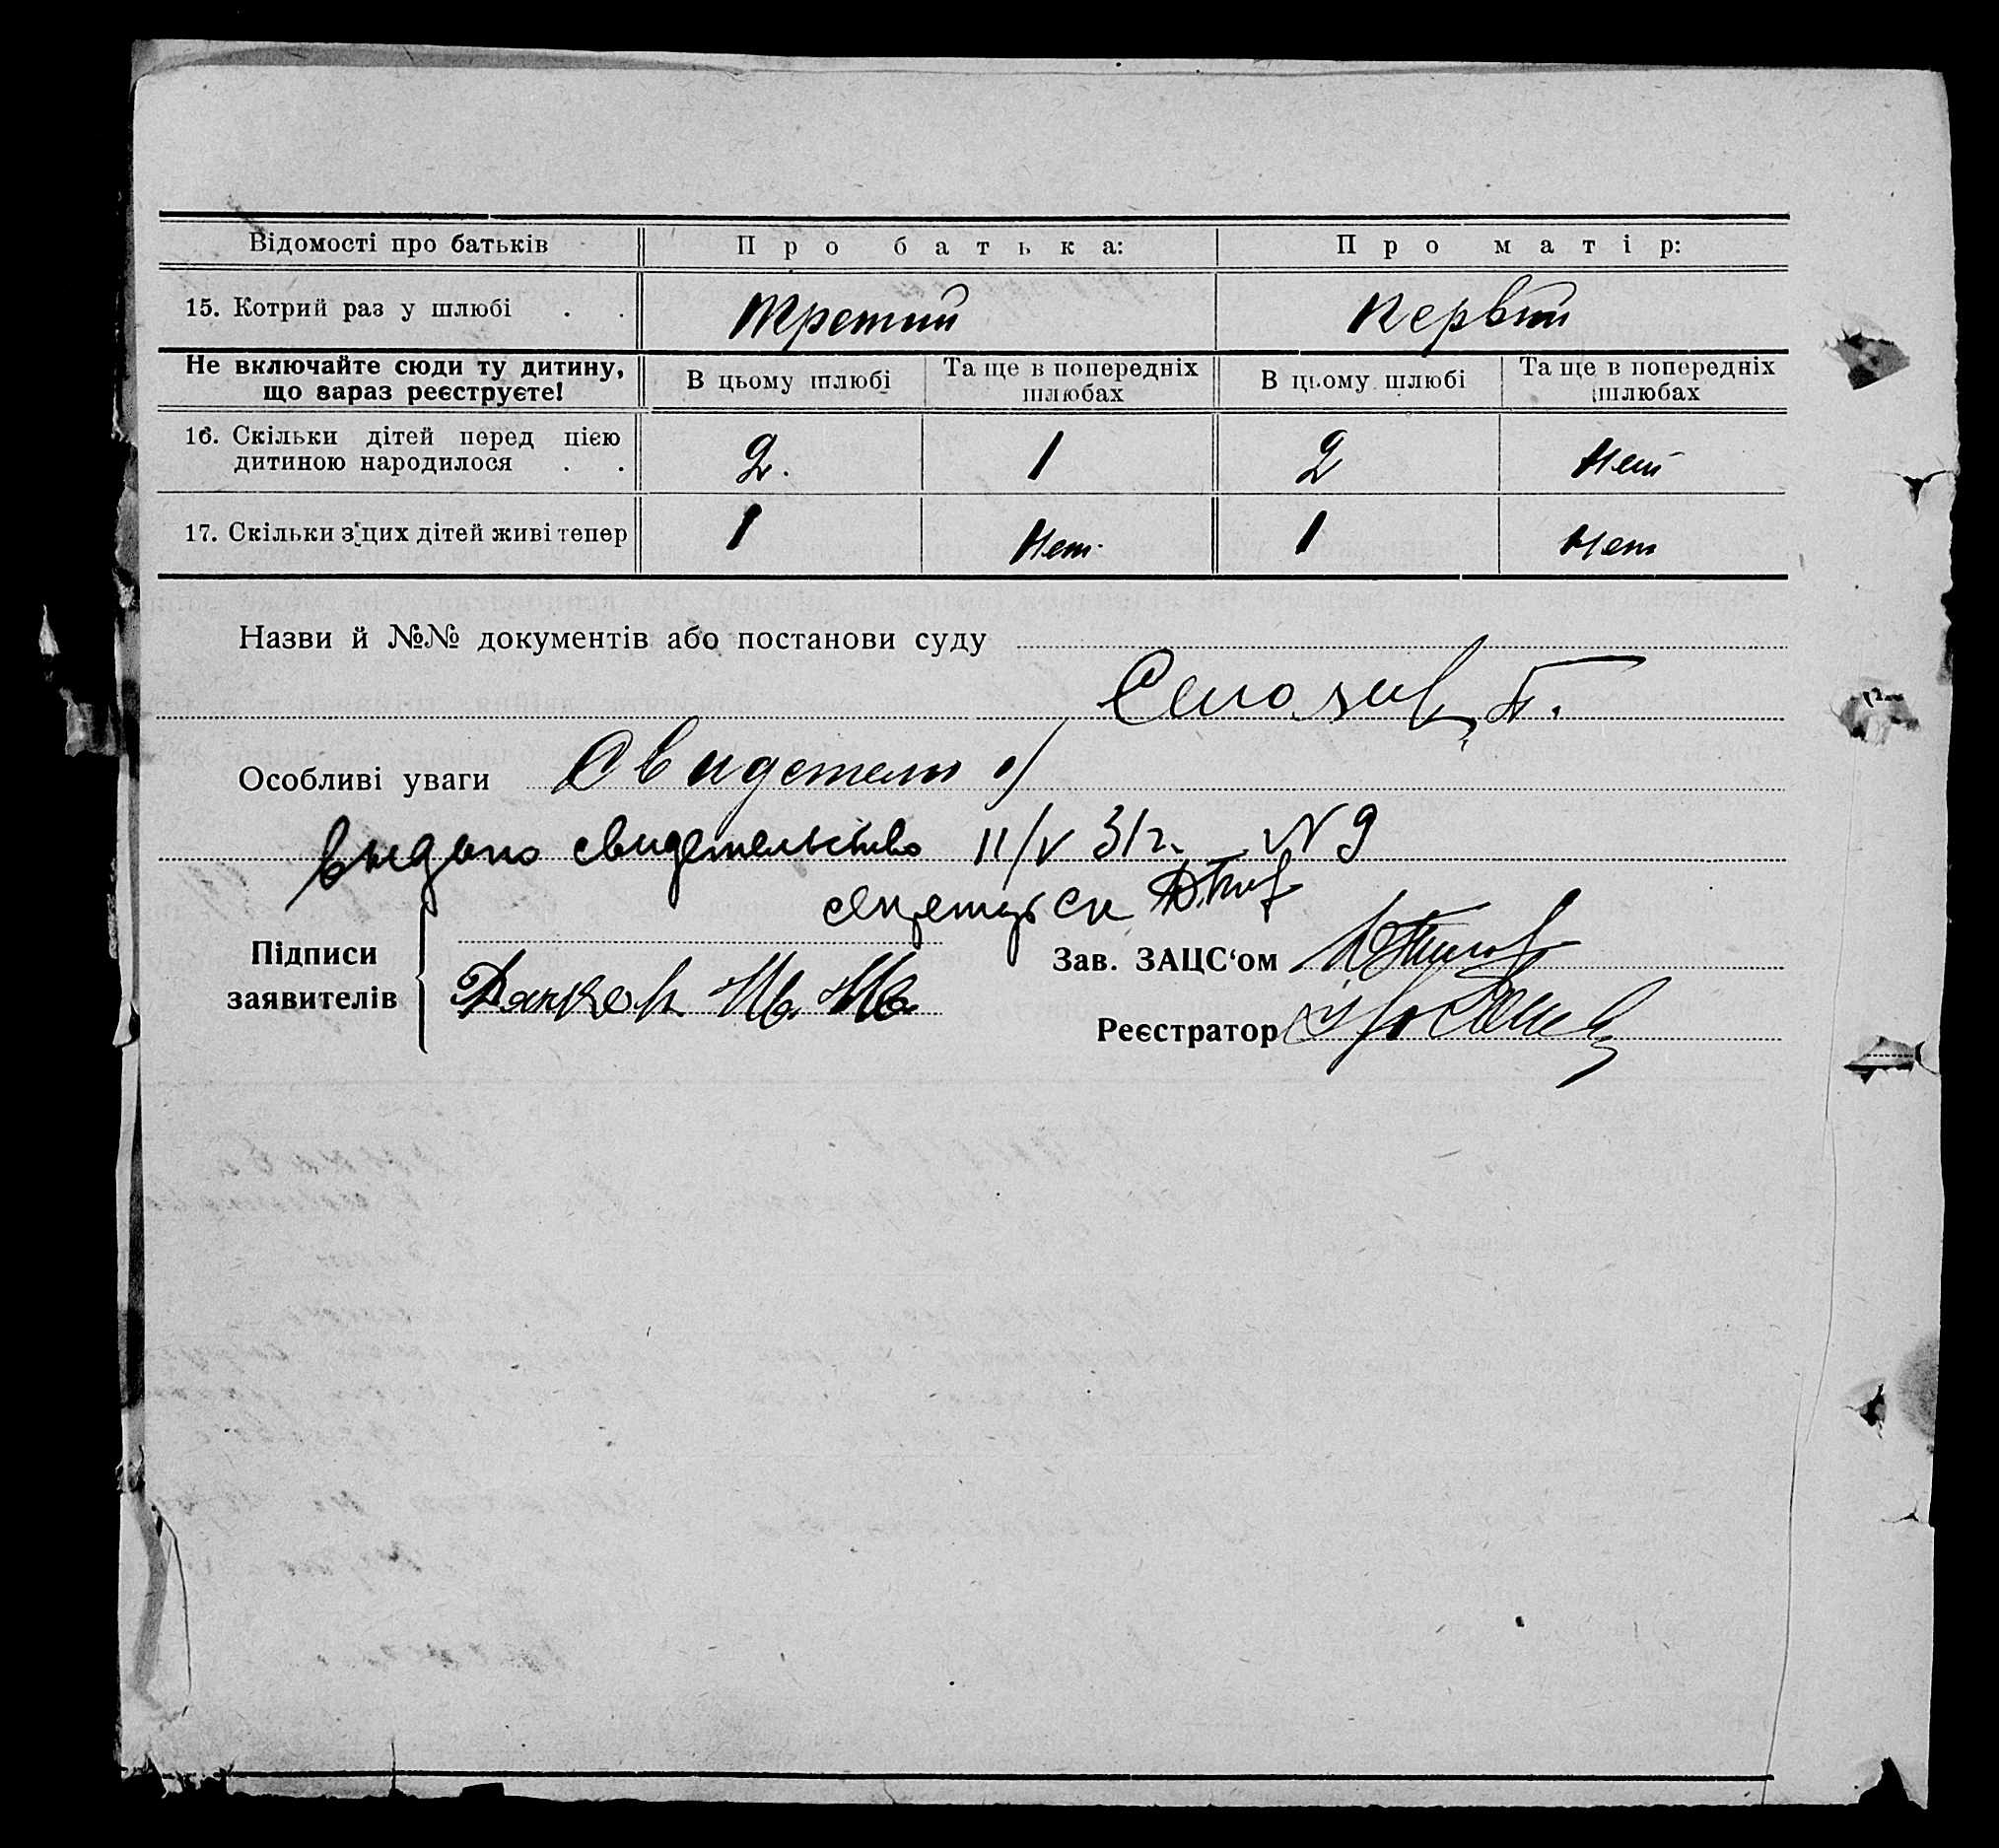 Відомості про батьків Про батька: Про матір:
15. Котрий раз у шлюбі . . третий первый
Не включайте сюди ту дитину, що зараз реєструєте! В цьому шлюбі Та ще в попередніх шлюбах В цьому шлюбі Та ще в попередніх шлюбах
16. Скільки дітей перед цією дитиною народилося . . 2. 1 2 нет
17. Скільки з цих дітей живі тепер 1 нет. 1 нет
Назви й №№ документів або постанови суду
Особливі уваги Свидетели
выдано свидетельство 11/V 31г. N 9
секретарь
Підписи заявителів
Зав. ЗАЦС‘ом
Реєстратор